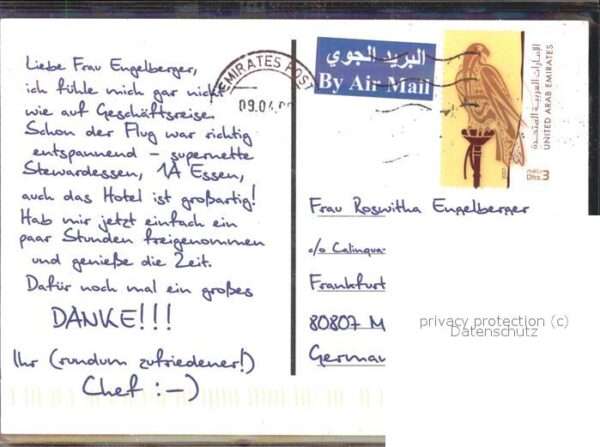 Liebe Frau Engelberger,
ich fühle mich gar nicht
wie auf Geschäftsreise.
Schon der Flug war richtig
entspannend – supernette
Stewardessen, 1A Essen,
auch das Hotel ist großartig!
Hab mir jetzt einfach ein
paar Stunden freigenommen
und genieße die Zeit.
Dafür noch mal ein großes
DANKE!!!
Ihr (rundum zufriedener!)
Chef :-)
EMIRATES POST
09.04.
البريد الجوي
By Air Mail
الإمارات العربية المتحدة
UNITED ARAB EMIRATES
Dhs 3
Frau Roswitha Engelberger
c/o Calinqua
Frankfurt
80807 M
German
privacy protection (c)
Datenschutz